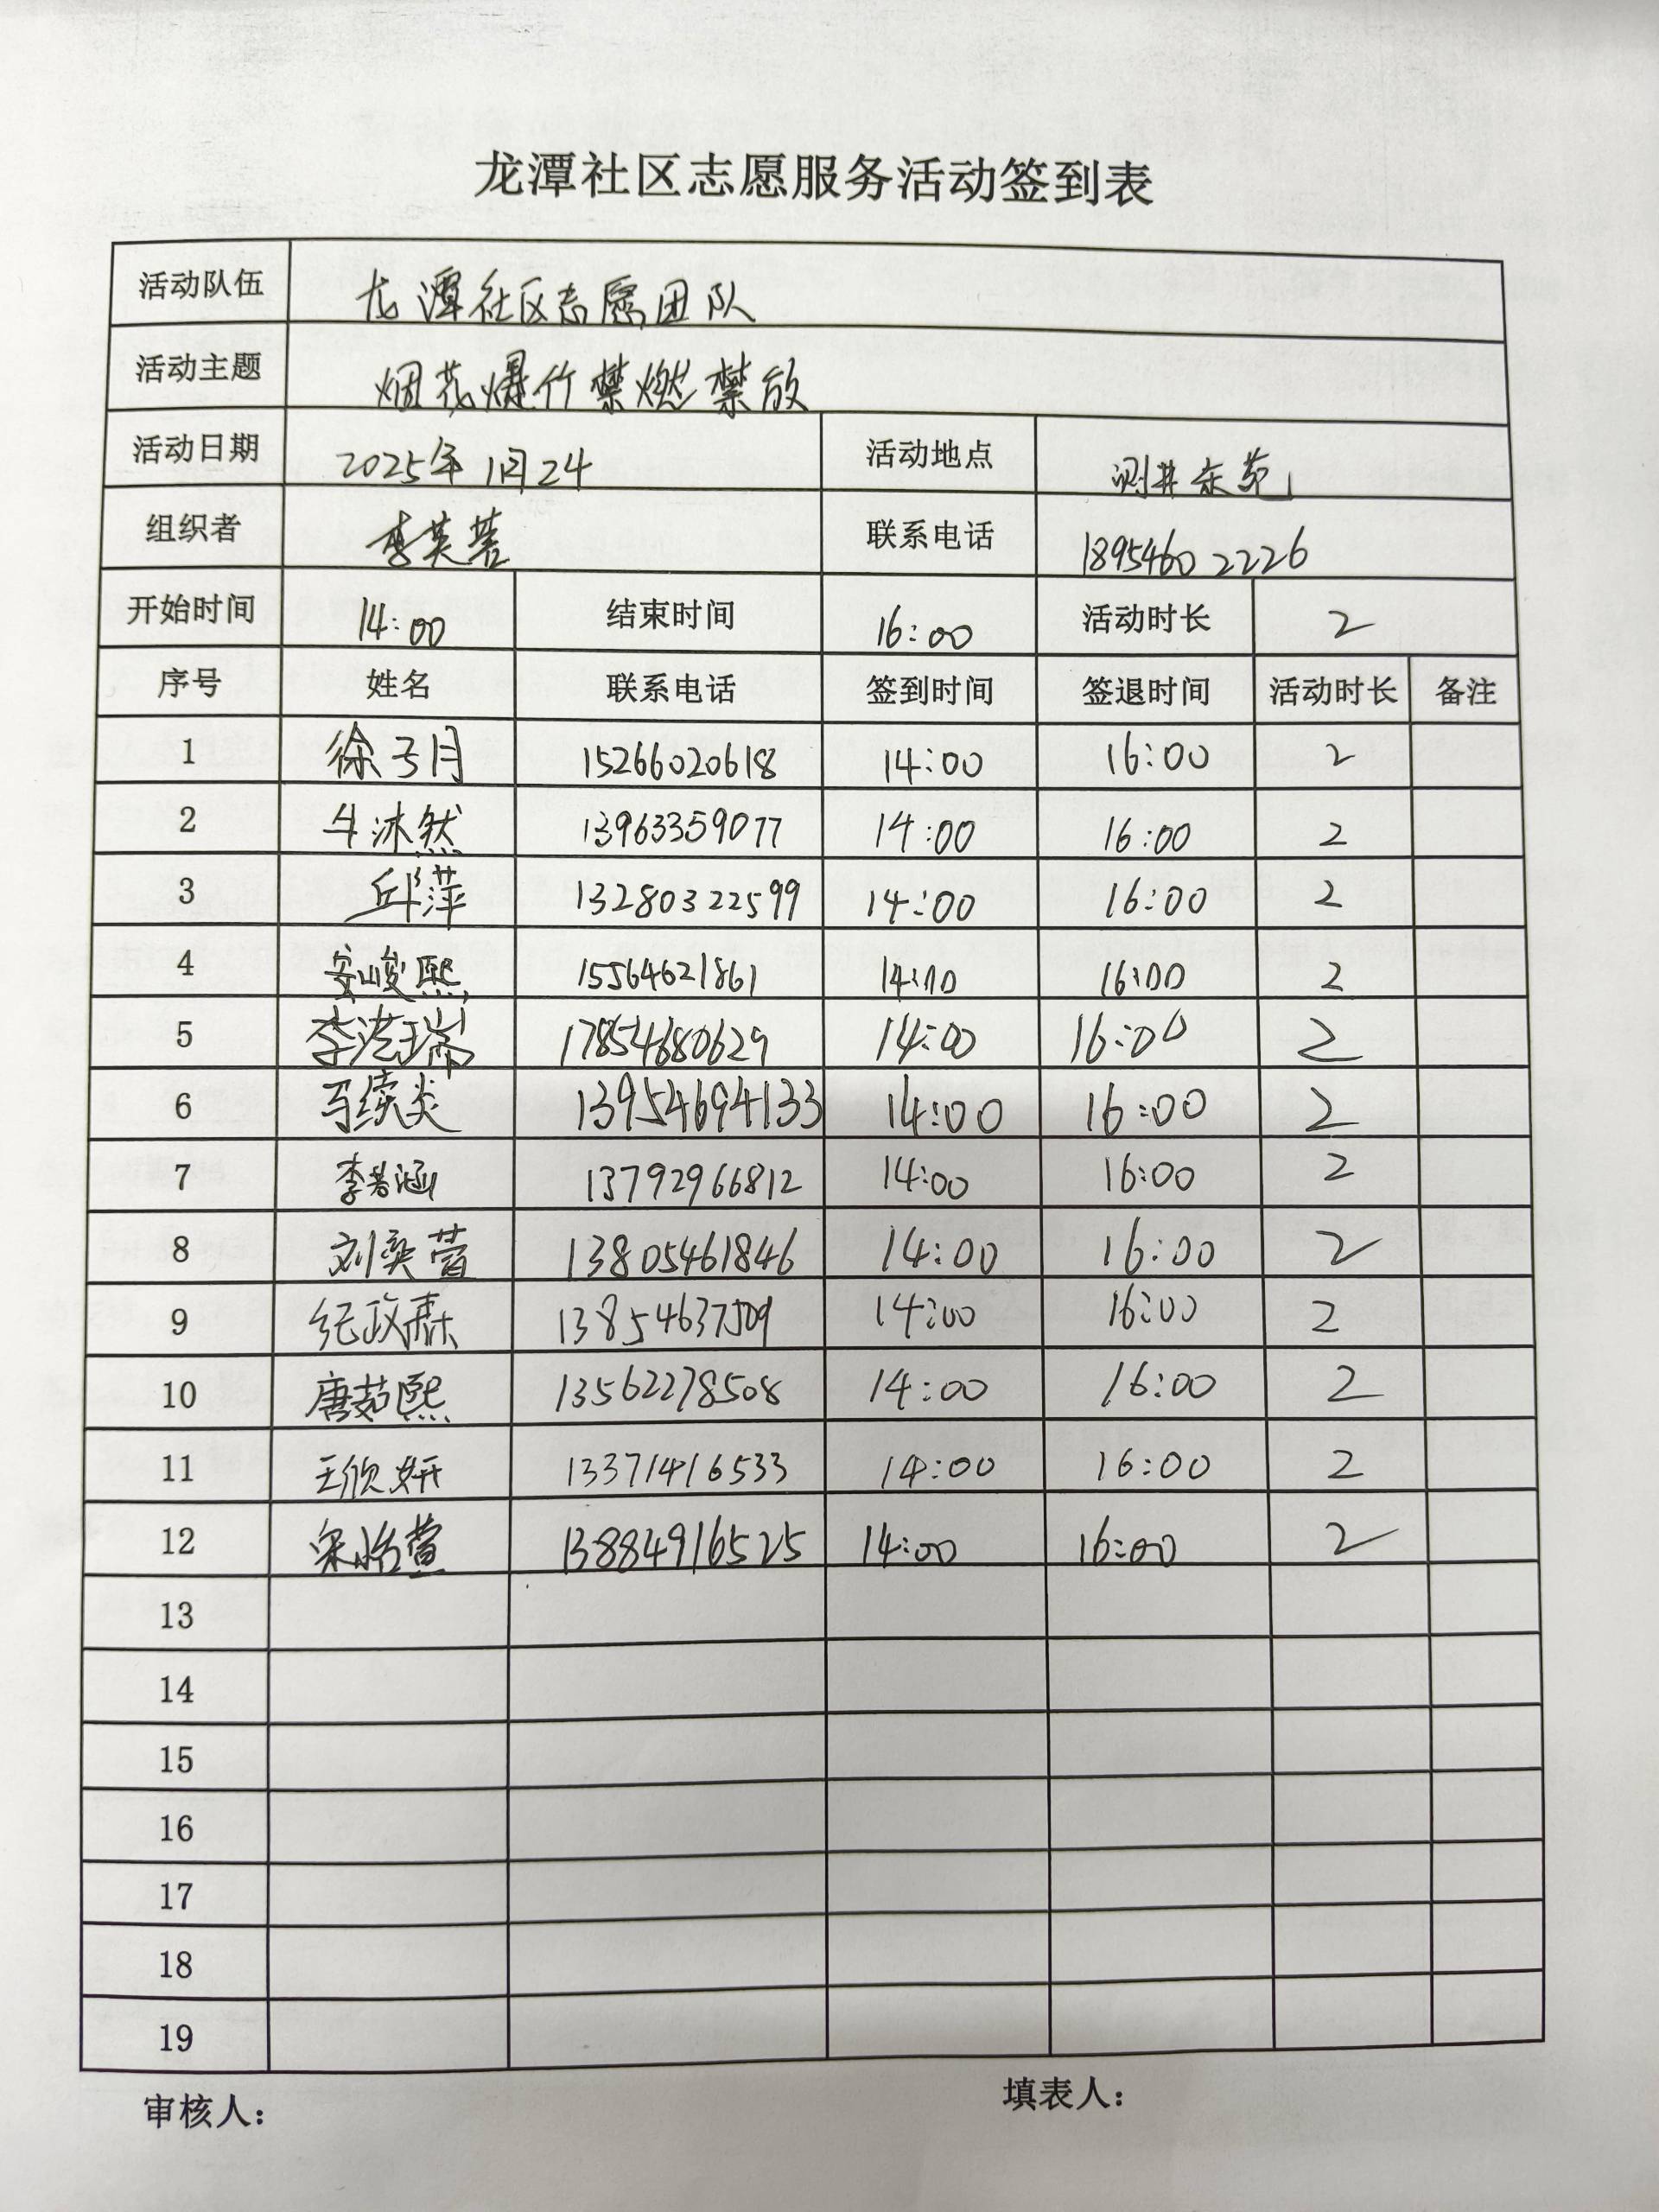 龙潭社区志愿服务活动签到表
活动队伍 龙潭社区志愿团队
活动主题 烟花爆竹禁燃禁放
活动日期 2025年1月24 活动地点 测井东苑
组织者 李英蓉 联系电话 18954602226
开始时间 14:00 结束时间 16:00 活动时长 2
序号 姓名 联系电话 签到时间 签退时间 活动时长 备注
1 徐子月 15266020618 14:00 16:00 2
2 牛沐然 13963359077 14:00 16:00 2
3 邱萍 13280322599 14:00 16:00 2
4 安峻熙 15564621861 14:00 16:00 2
5 李浩瑞 17854680629 14:00 16:00 2
6 马续炎 13954694133 14:00 16:00 2
7 李若涵 13792966812 14:00 16:00 2
8 刘奕萱 13805461846 14:00 16:00 2
9 纪政霖 13854637509 14:00 16:00 2
10 唐茹熙 13562278508 14:00 16:00 2
11 王欣妍 13371416533 14:00 16:00 2
12 宋怡萱 13884916525 14:00 16:00 2
13
14
15
16
17
18
19
审核人： 填表人：